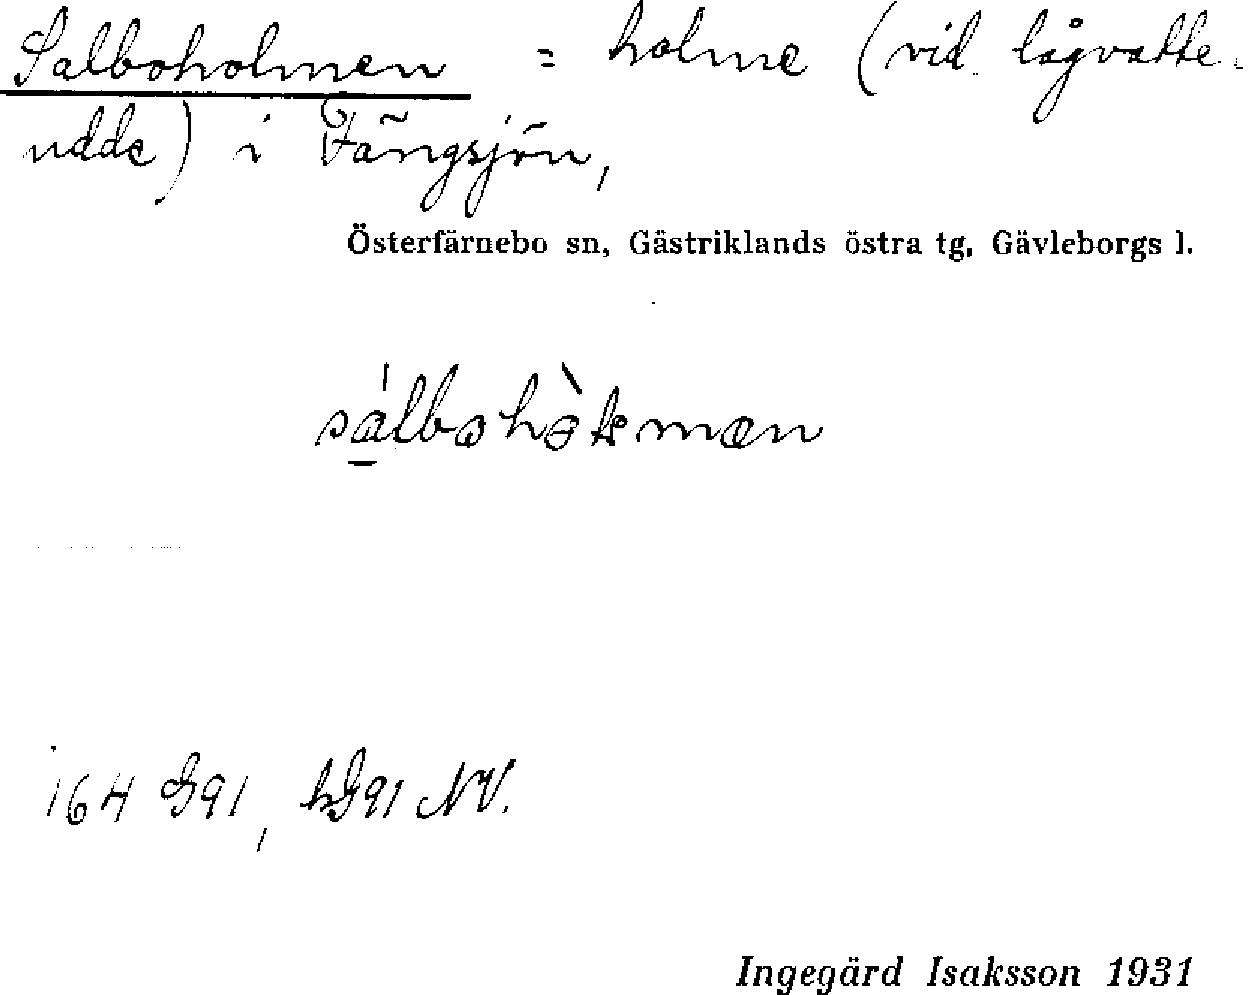 Salboholmen = holme (vid lågvatte
udde) i Fängsjön,
Österfärnebo sn, Gästriklands östra tg, Gävleborgs l.
164 G91, G91 NV.
Ingegärd Isaksson 1931